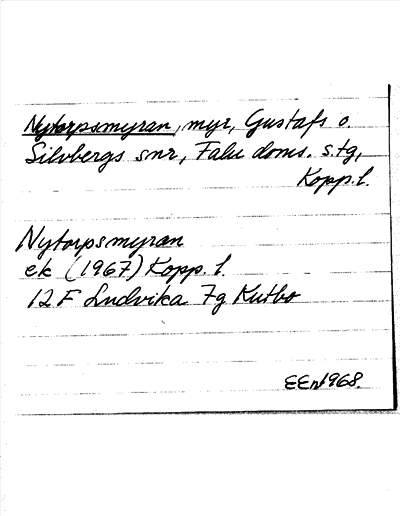 Nytorpsmyran, myr, Gustafs o.
Silvbergs snr, Falu doms. s.tg,
Kopp.l.
Nytorpsmyran
ek (1967) Kopp. l.
12F Ludvika 7g Kutbo
EEn 1968.